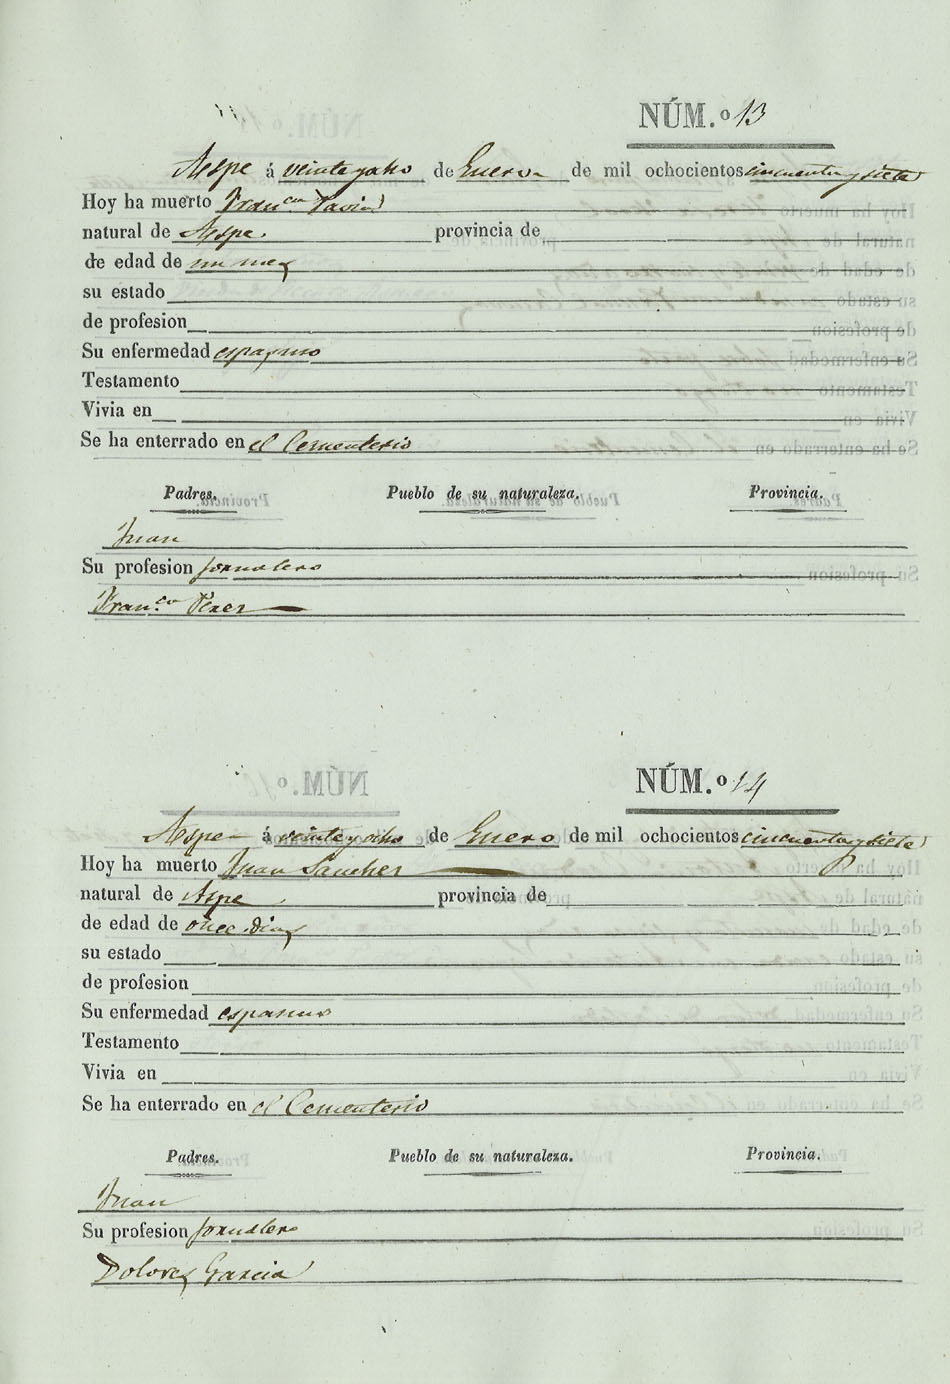 NÚM.º 13
Aspe á veinte y ocho de Enero de mil ochocientos cincuenta y siete
Hoy ha muerto Fran.ca Pavia
natural de Aspe. provincia de
de edad de un mes
su estado
de profesion
Su enfermedad espasmo
Testamento
Vivia en
Se ha enterrado en el Cementerio
Padres. Pueblo de su naturaleza. Provincia.
Juan
Su profesion jornalero
Fran.ca Perez
NÚM.º 14
Aspe á veinte y ocho de Enero de mil ochocientos cincuenta y siete
Hoy ha muerto Juan Sanchez
natural de Aspe provincia de
de edad de once dias
su estado
de profesion
Su enfermedad espasmo
Testamento
Vivia en
Se ha enterrado en el Cementerio
Padres. Pueblo de su naturaleza. Provincia.
Juan
Su profesion jornalero
Dolores Garcia